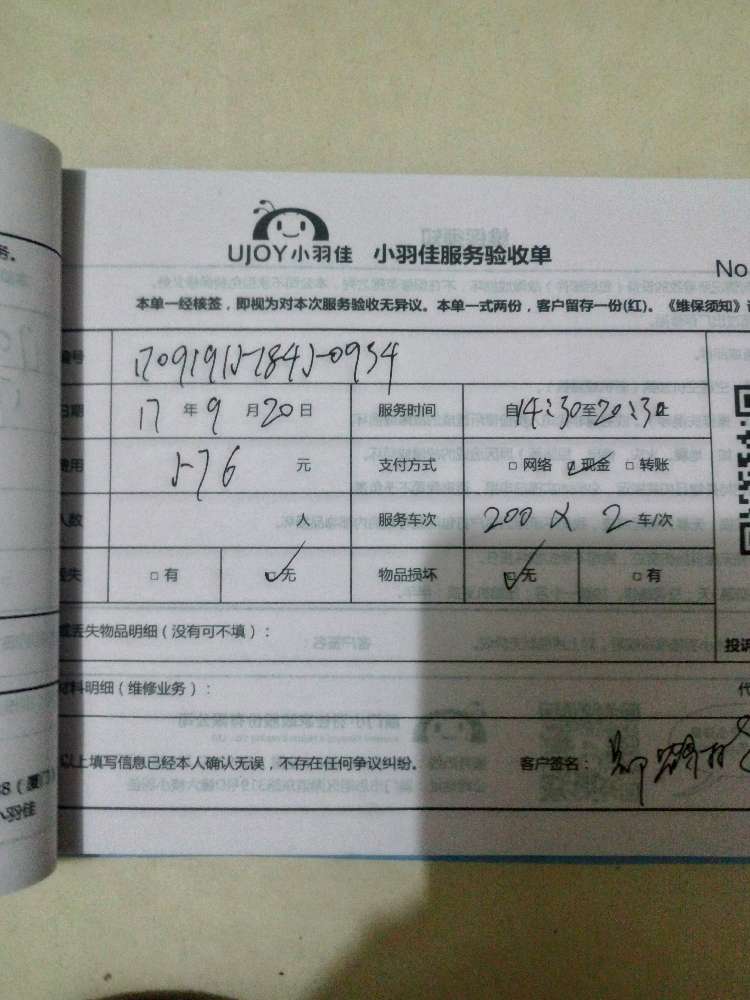 务。
UJOY小羽佳 小羽佳服务验收单
No
本单一经核签，即视为对本次服务验收无异议。本单一式两份，客户留存一份(红)。《维保须知》
编号 170919151845-0934
日期 17 年 9 月 20 日 服务时间 自14:30至20:30止
费用 576 元 支付方式 □ 网络 ☑ 现金 □ 转账
人数 人 服务车次 200 × 2 车/次
丢失 □ 有 ☑ 无 物品损坏 ☑ 无 □ 有
或丢失物品明细（没有可不填）：
投诉
材料明细（维修业务）：
以上填写信息已经本人确认无误，不存在任何争议纠纷。 客户签名：
8（厦门
小羽佳